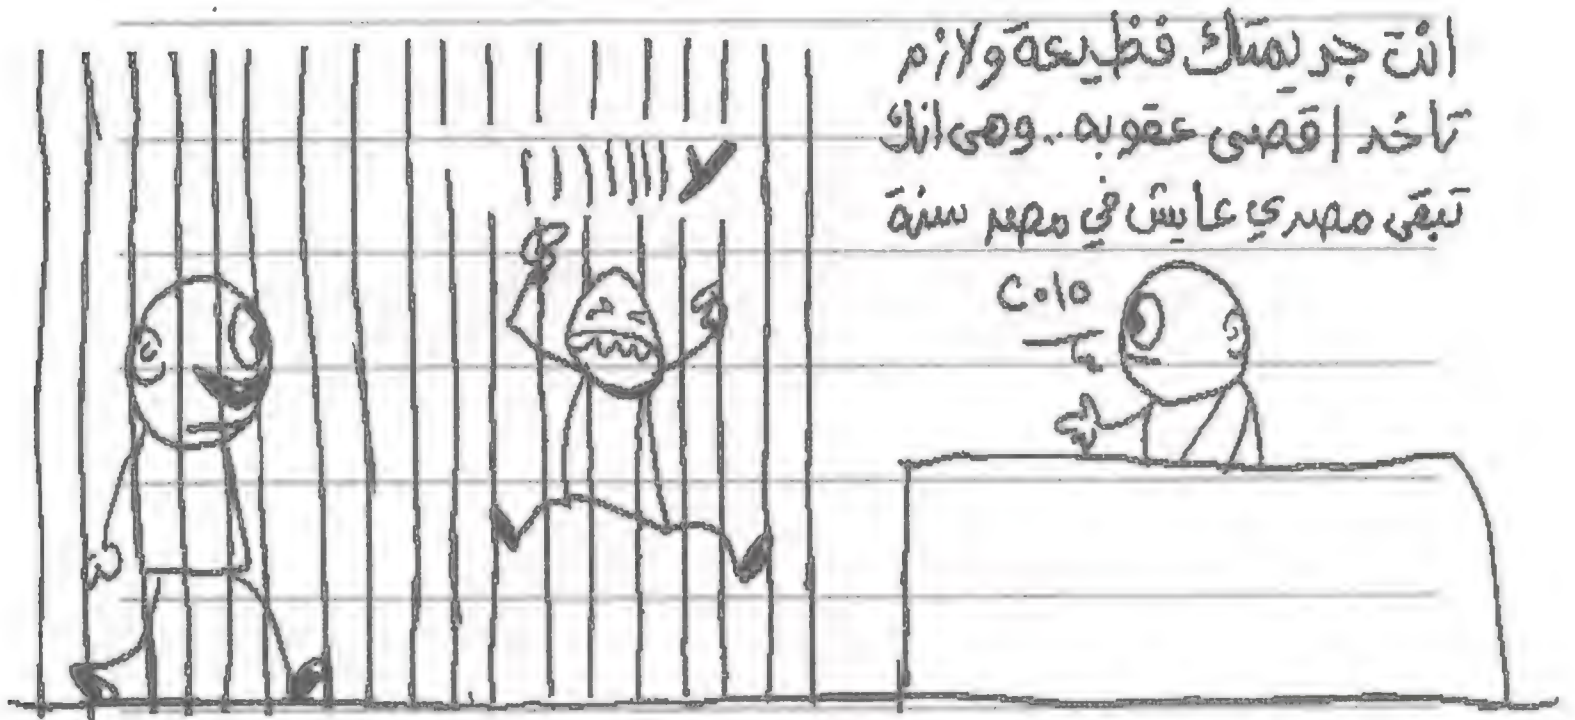 انت جريمتك فظيعة ولازم
تاخد اقصى عقوبه .. وهى انك
تبقى مصري عايش في مصر سنة
٢٠١٥
لااااااااا